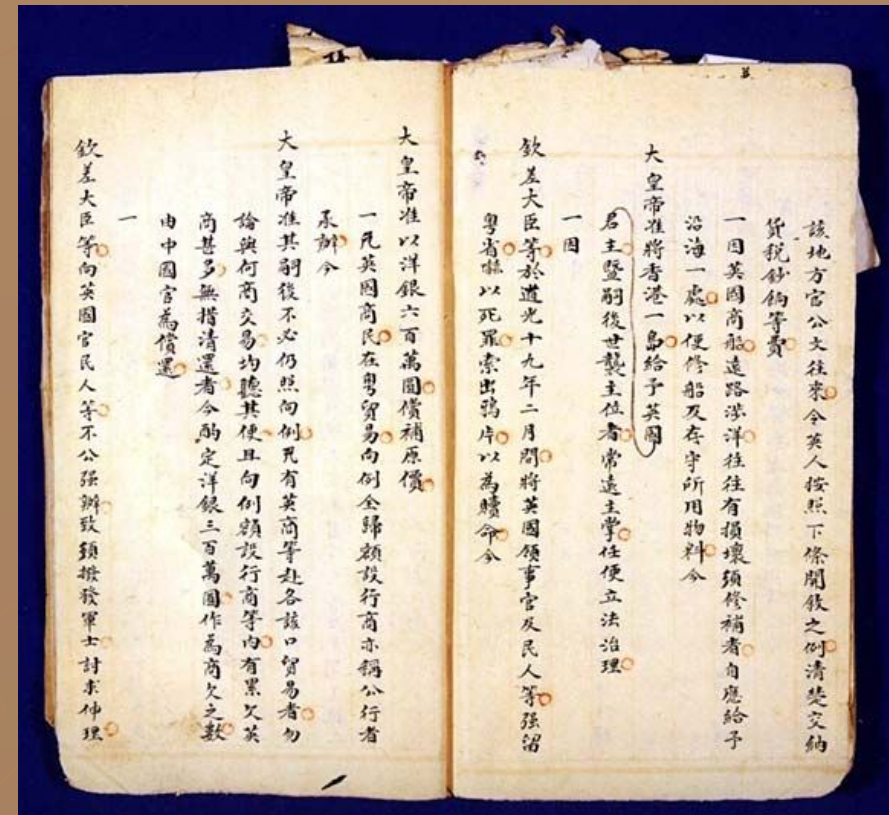 該地方官公文往來令英人按照下條開敘之例清楚交納
貨稅鈔餉等費
一因英國商船遠路涉洋往往有損壞須修補者自應給予
沿海一處以便修船及存守所用物料今
大皇帝准將香港一島給予英國
君主暨嗣後世襲主位者常遠主掌任便立法治理
一因
欽差大臣等於道光十九年二月間將英國領事官及民人等強留
粵省嚇以死罪索出鴉片以為贖命今
大皇帝准以洋銀六百萬圓償補原價
一凡英國商民在粵貿易向例全歸額設行商亦稱公行者
承辦今
大皇帝准其嗣後不必仍照向例凡有英商等赴各該口貿易者勿
論與何商交易均聽其便且向例額設行商等內有累欠英
商甚多無措清還者今酌定洋銀三百萬圓作為商欠之數
由中國官為償還
一
欽差大臣等向英國官民人等不公强辦致須撥發軍士討求伸理